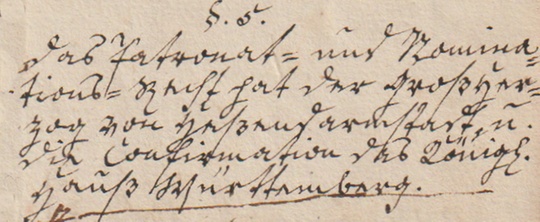 §. 5.
Das Patronat= und Nomina=
tions=Recht hat der Großher=
zog von Hessendarmstadt, u.
die Confirmation das Königl.
Hauß Württemberg.